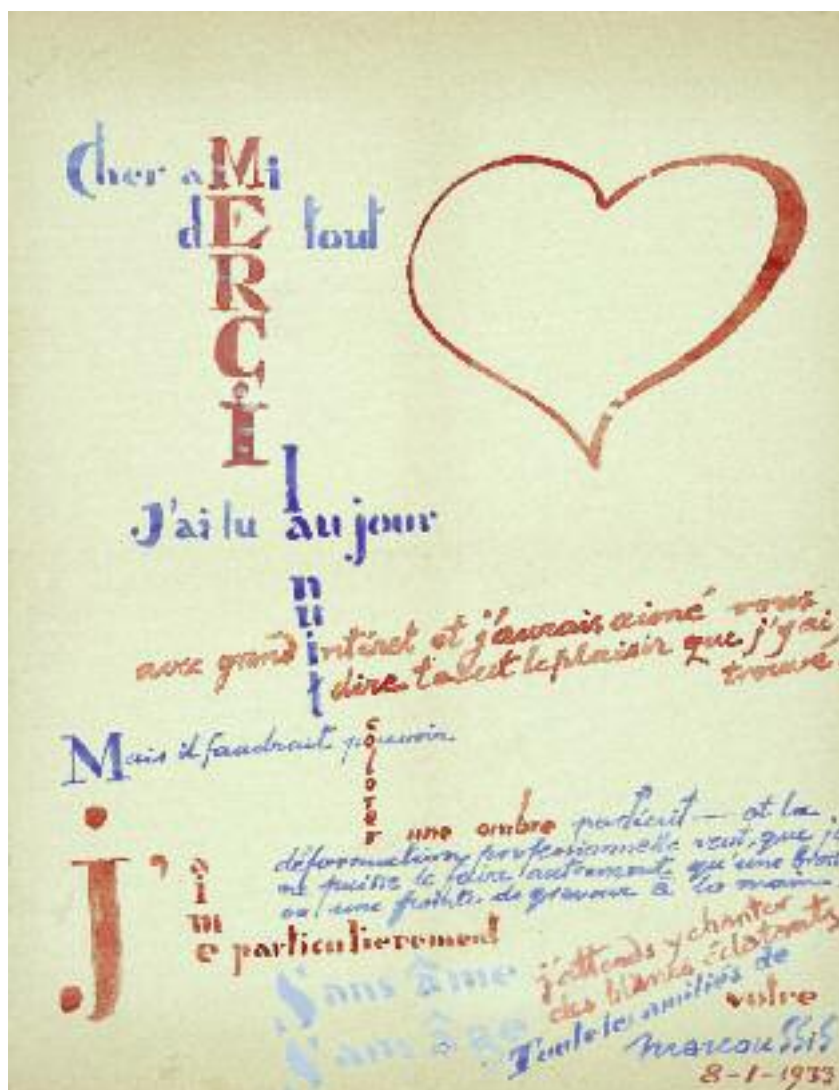 Cher aMi
MERCI
dE tout
J'ai lu la nuit
au jour
avec grand intéret et j'aurais aimé vous
dire tout le plaisir que j'y ai
trouvé
Mais il faudrait pouvoir
colorer
une ombre — et la
déformation professionnelle veut que
ne puisse le dire autrement qu'une
ou une pointe de graveur à la main
j'aime
particulierement
Sans âme
Sans âge
j'attends y chanter
des blancs éclatants
Toutes les amitiés de
votre
Marcoussis
8-1-1933